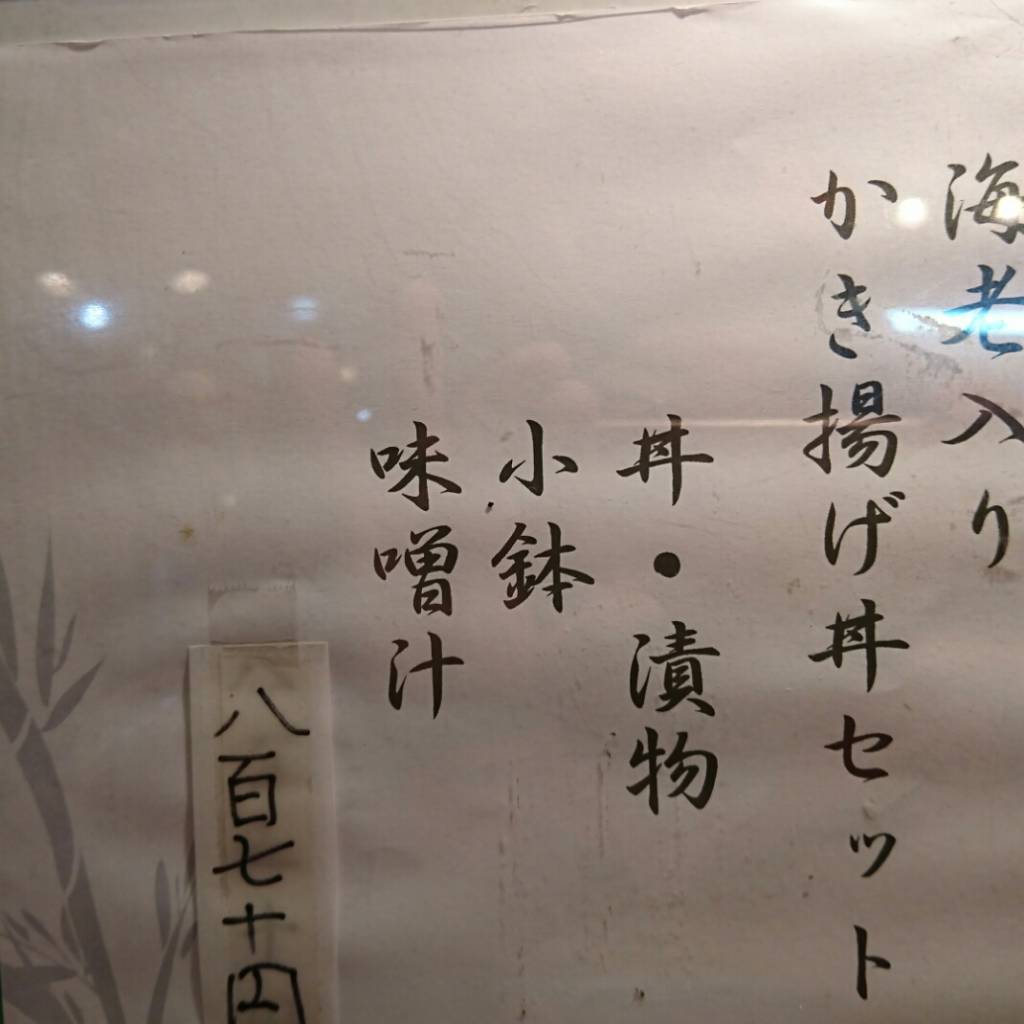 海老入り
かき揚げ丼セット
丼・漬物
小鉢
味噌汁
八百七十円